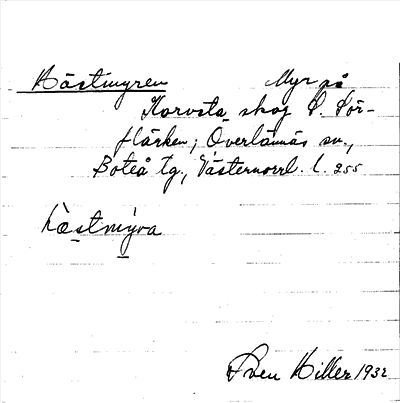 Hästmyren Myr på
Korvsta skog S. Sör-
flärken; Överlännäs sn.,
Boteå tg., Västernorrl. l. 255
hæstmýra
Sven Hiller 1932